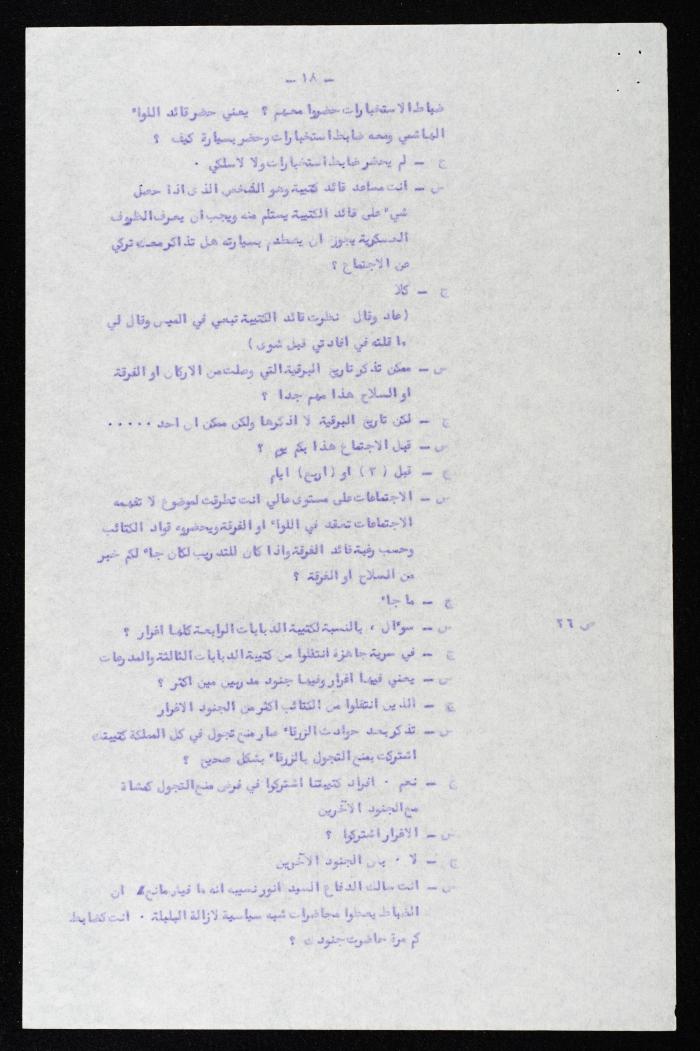 - ١٨ -
ضباط الاستخبارات حضروا معهم ؟ يعني حضر قائد اللواء
الهاشمي ومعه ضابط استخبارات وحضر بسيارة كيف ؟
ج - لم يحضر ضابط استخبارات ولا لاسلكي .
س - انت مساعد قائد كتيبة وهو الشخص الذى اذا حصل
شيء على قائد الكتيبة يستلم منه ويجب ان يعرف الظروف
العسكرية يجوز ان يصطدم بسيارته هل تذاكر معك تركي
عن الاجتماع ؟
ج - كلا
(عاد وقال نظرت قائد الكتيبة تبعي في الميس وقال لي
ما قلته في افادتي قبل شوى)
س - ممكن تذكر تاريخ البرقية التي وصلت من الاركان او الفرقة
او السلاح هذا مهم جدا ؟
ج - لكن تاريخ البرقية لا اذكرها ولكن ممكن ان احد .....
س - قبل الاجتماع هذا بكم يوم ؟
ج - قبل (٣) او (اربع) ايام
س - الاجتماعات على مستوى عالي انت تطرقت لموضوع لا تفهمه
الاجتماعات تعقد في اللواء او الفرقة ويحضره قواد الكتائب
وحسب رغبة قائد الفرقة واذا كان للتدريب لكان جاء لكم خبر
من السلاح او الفرقة ؟
ج - ما جاء
س - سوءال ، بالنسبة لكتيبة الدبابات الرابعة كلها اغرار ؟
ص ٢٦
ج - في سرية جاهزة انتقلوا من كتيبة الدبابات الثالثة والمدرعات
س - يعني فيها اغرار وفيها جنود مدربين مين اكثر ؟
ج - الذين انتقلوا من الكتائب اكثر من الجنود الاغرار
س - تذكر بعد حوادث الزرقاء صار منع تجول في كل المملكة كتيبتك
اشتركت بمنع التجول بالزرقاء بشكل صحيح ؟
ج - نعم . افراد كتيبتنا اشتركوا في فرض منع التجول كمشاة
مع الجنود الآخرين
س - الاغرار اشتركوا ؟
ج - لا . بس الجنود الآخرين
س - انت سالك الدفاع السيد انور نسيبه انه ما فيش مانع ان
الضباط يعطوا محاضرات شبه سياسية لازالة البلبلة . انت كضابط
كم مرة حاضرت جنودك ؟